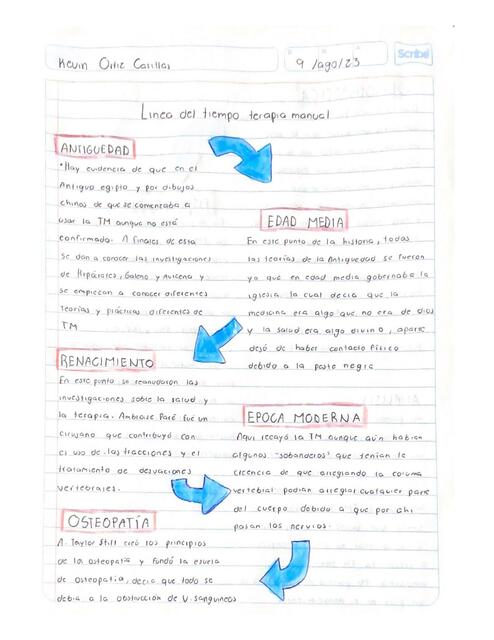 Kevin Ortiz Casillas
9 /ago/23
Scribe
Linea del tiempo terapia manual
ANTIGUEDAD
*Hay evidencia de que en el
Antiguo egipto y por dibujos
chinos de que se comenzaba a
usar la TM aunque no está
confirmado. A finales de esta
se dan a conocer las investigaciones
de Hipócrates, Galeno y Avicena y
se empiezan a conocer diferentes
teorías y prácticas diferentes de
TM
EDAD MEDIA
En este punto de la historia, todas
las teorías de la Antiguedad se fueron
ya que en edad media gobernaba la
iglesia la cual decia que la
medicina era algo que no era de dios
y la salud era algo divino, aparte
dejó de haber contacto físico
debido a la peste negra
RENACIMIENTO
En este punto se reanudaron las
investigaciones sobre la salud y
la terapia. Ambroise Paré fué un
cirujano que contribuyó con
el uso de las tracciones y el
tratamiento de desviaciones
vertebrales.
EPOCA MODERNA
Aqui recayó la TM aunque aún habian
algunos "sobanderos" que tenían la
creencia de que arreglando la columna
vertebral podían arreglar cualquier parte
del cuerpo debido a que por ahi
pasan los nervios.
OSTEOPATÍA
A. Taylor Still creó los principios
de la osteopatía y fundó la escuela
de osteopatia, decia que todo se
debia a la obstrucción de V. sanguineos